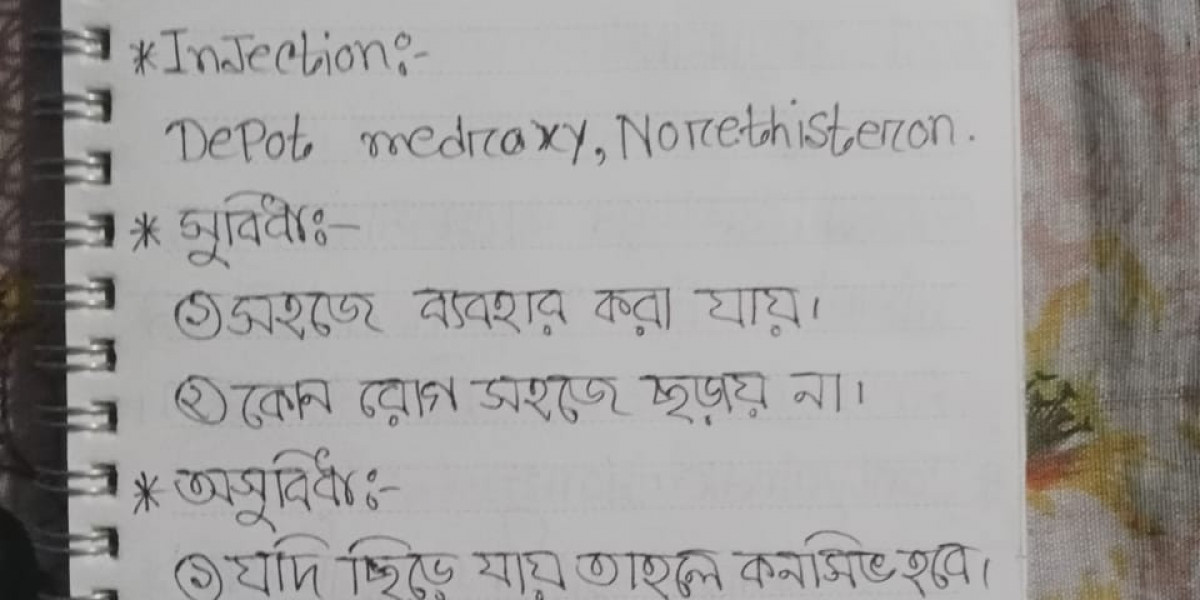 * Injection:-
Depot medroxy, Norethisteron.
* সুবিধাঃ-
① সহজে ব্যবহার করা যায়।
② কোন রোগ সহজে ছড়ায় না।
* অসুবিধাঃ-
① যদি ছিড়ে যায় তাহলে কনসিভ হবে।